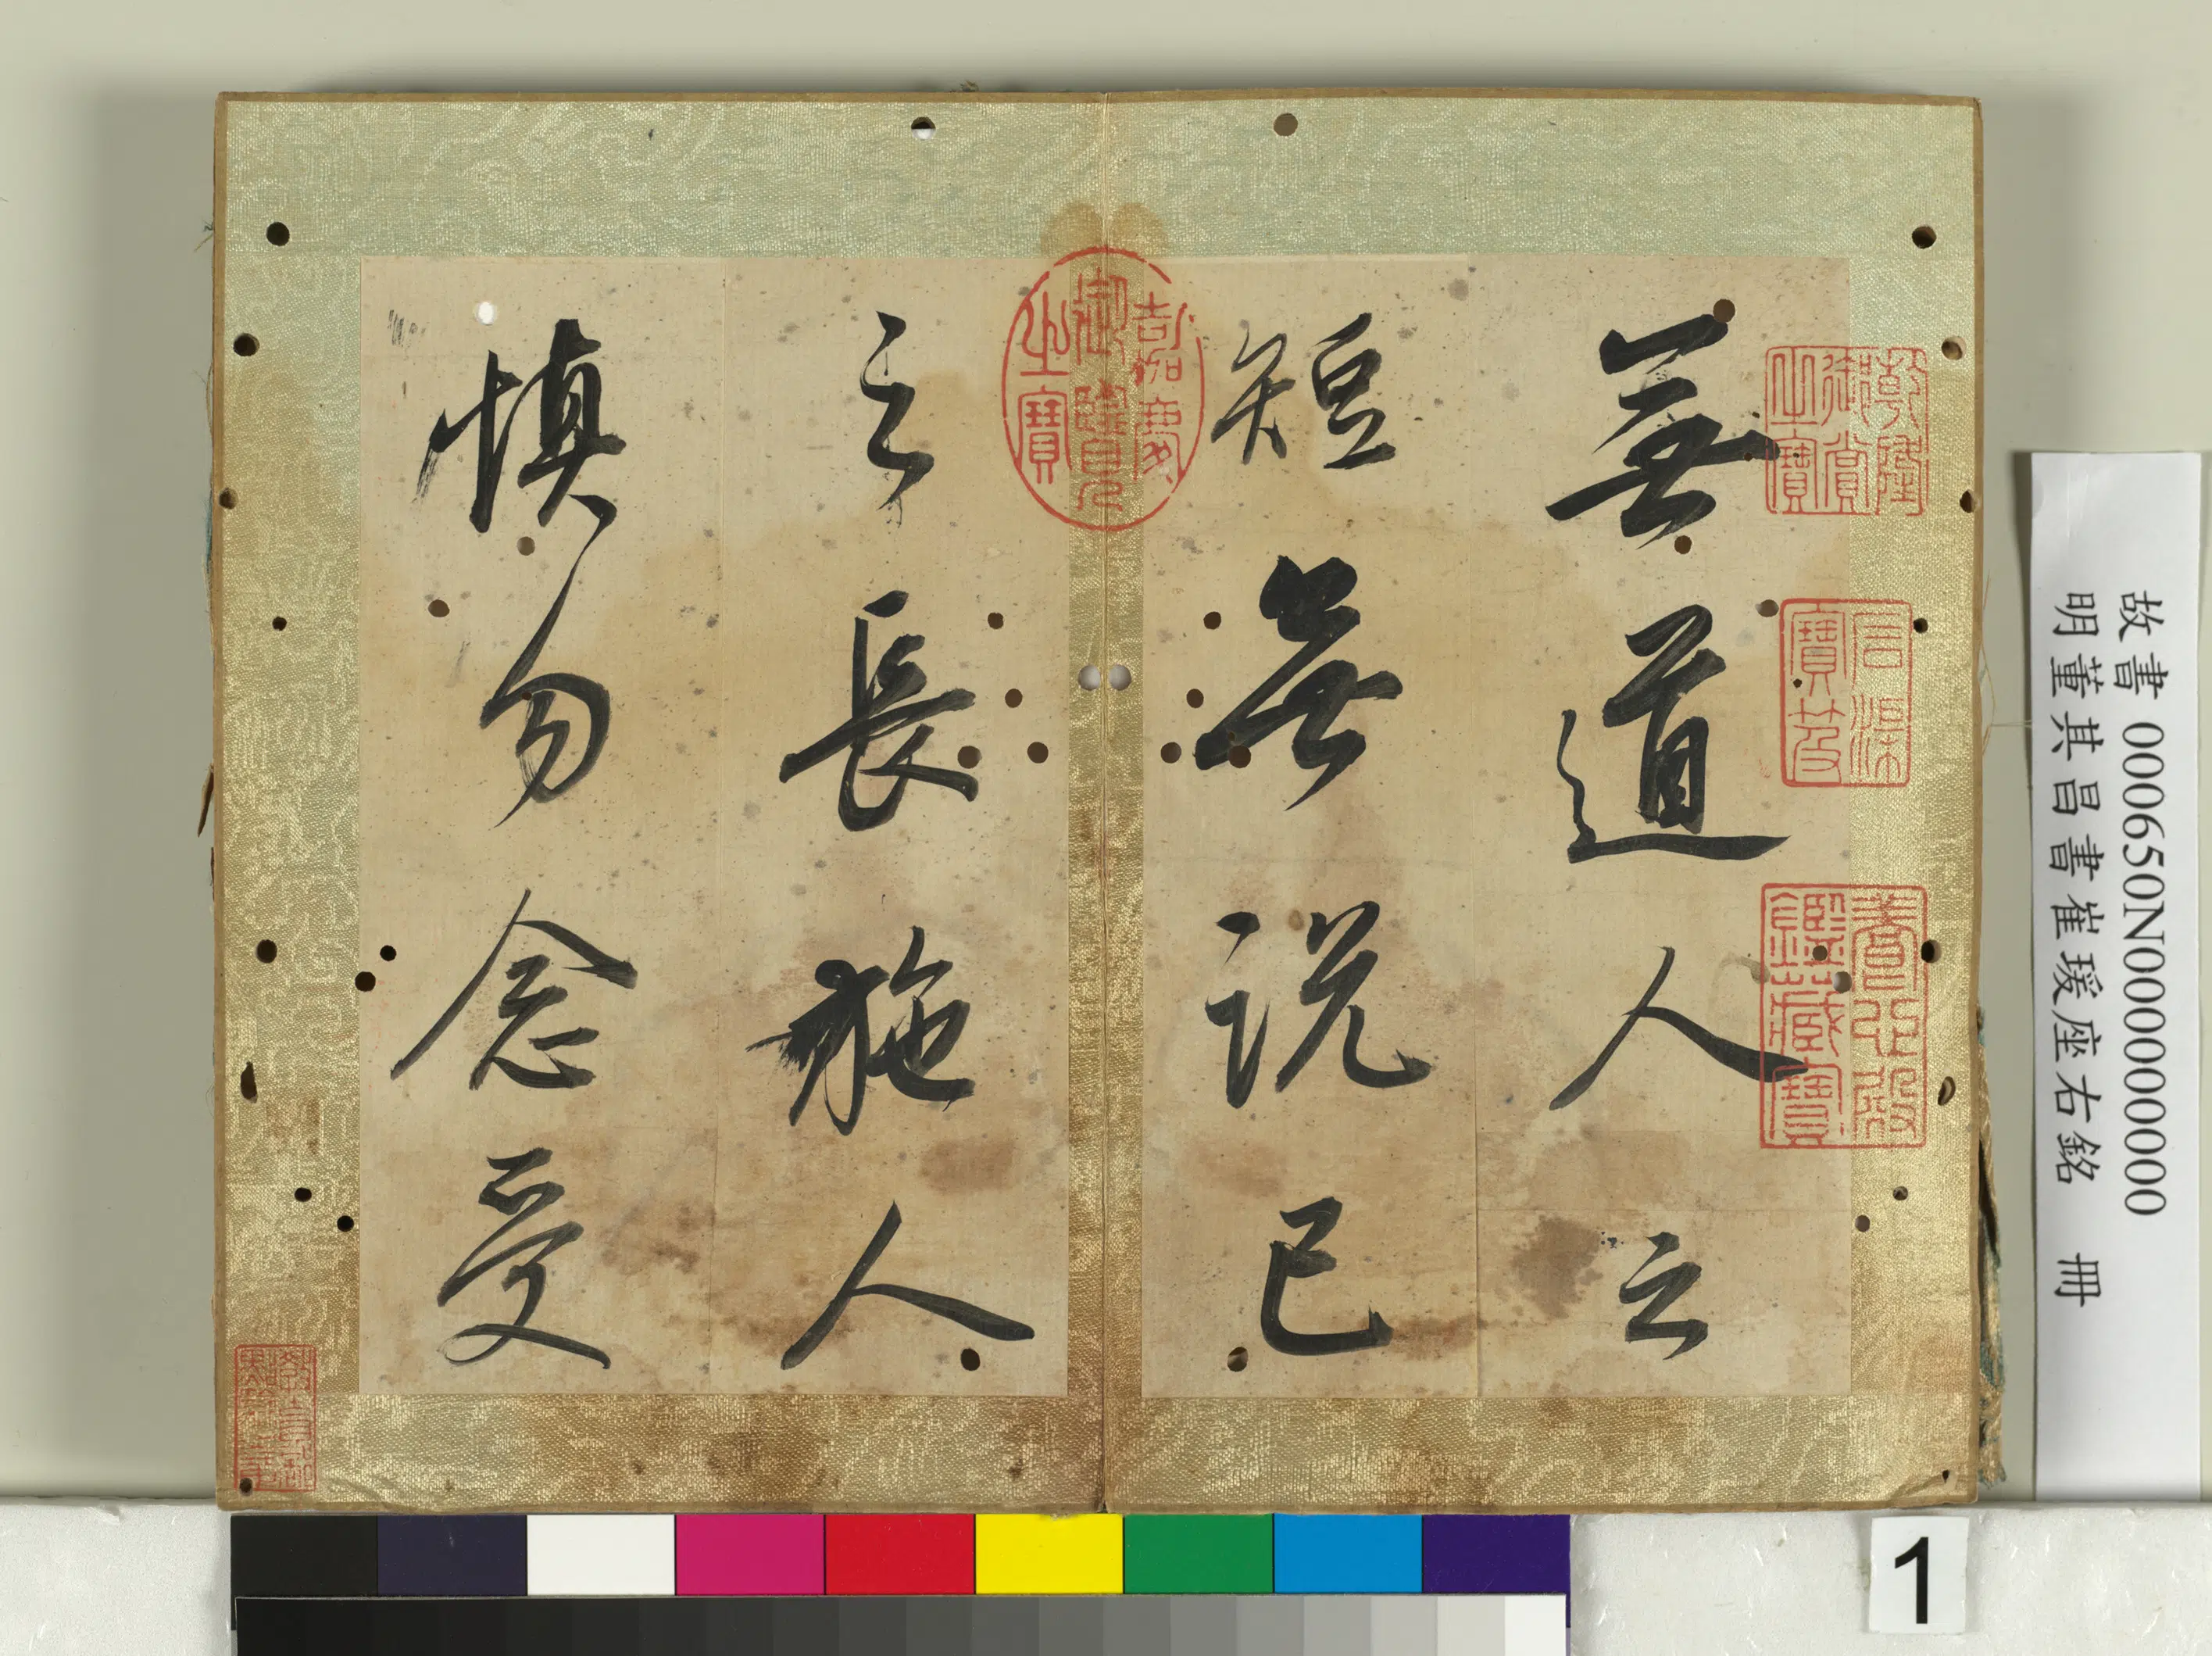 無道人之
短無説己
之長施人
慎勿念受
乾隆御賞之寶
石渠寶笈
養心殿鑑藏寶
嘉慶御覽之寶
故書 000650N000000000
明董其昌書崔瑗座右銘 冊
1